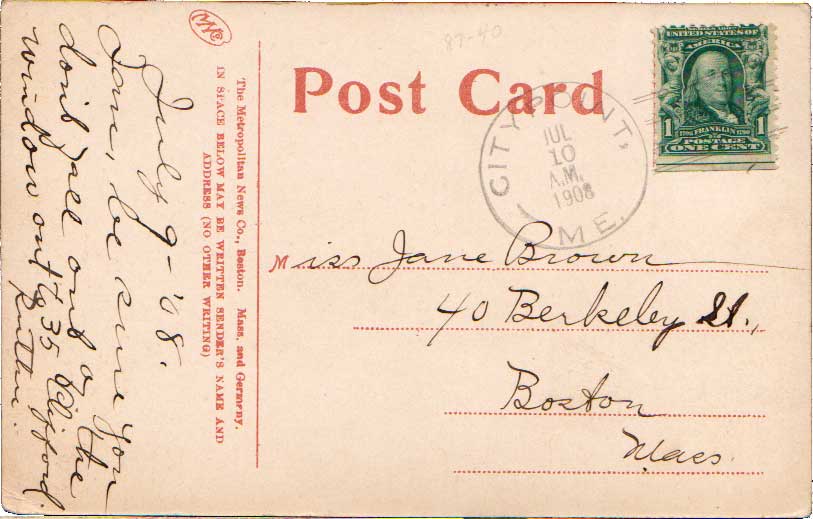 MNC
87-40
Post Card
UNITED STATES OF
AMERICA
1 1
1706 FRANKLIN 1790
POSTAGE
ONE CENT
CITY POINT,
JUL
10
A.M.
1908
ME.
Miss Jane Brown
40 Berkeley St.,
Boston
Mass.
The Metropolitan News Co., Boston. Mass, and Germany.
IN SPACE BELOW MAY BE WRITTEN SENDER'S NAME AND
ADDRESS (NO OTHER WRITING)
July 9-'08.
Jane, be sure you
don't fall out o' the
window onto 35 Clifford.